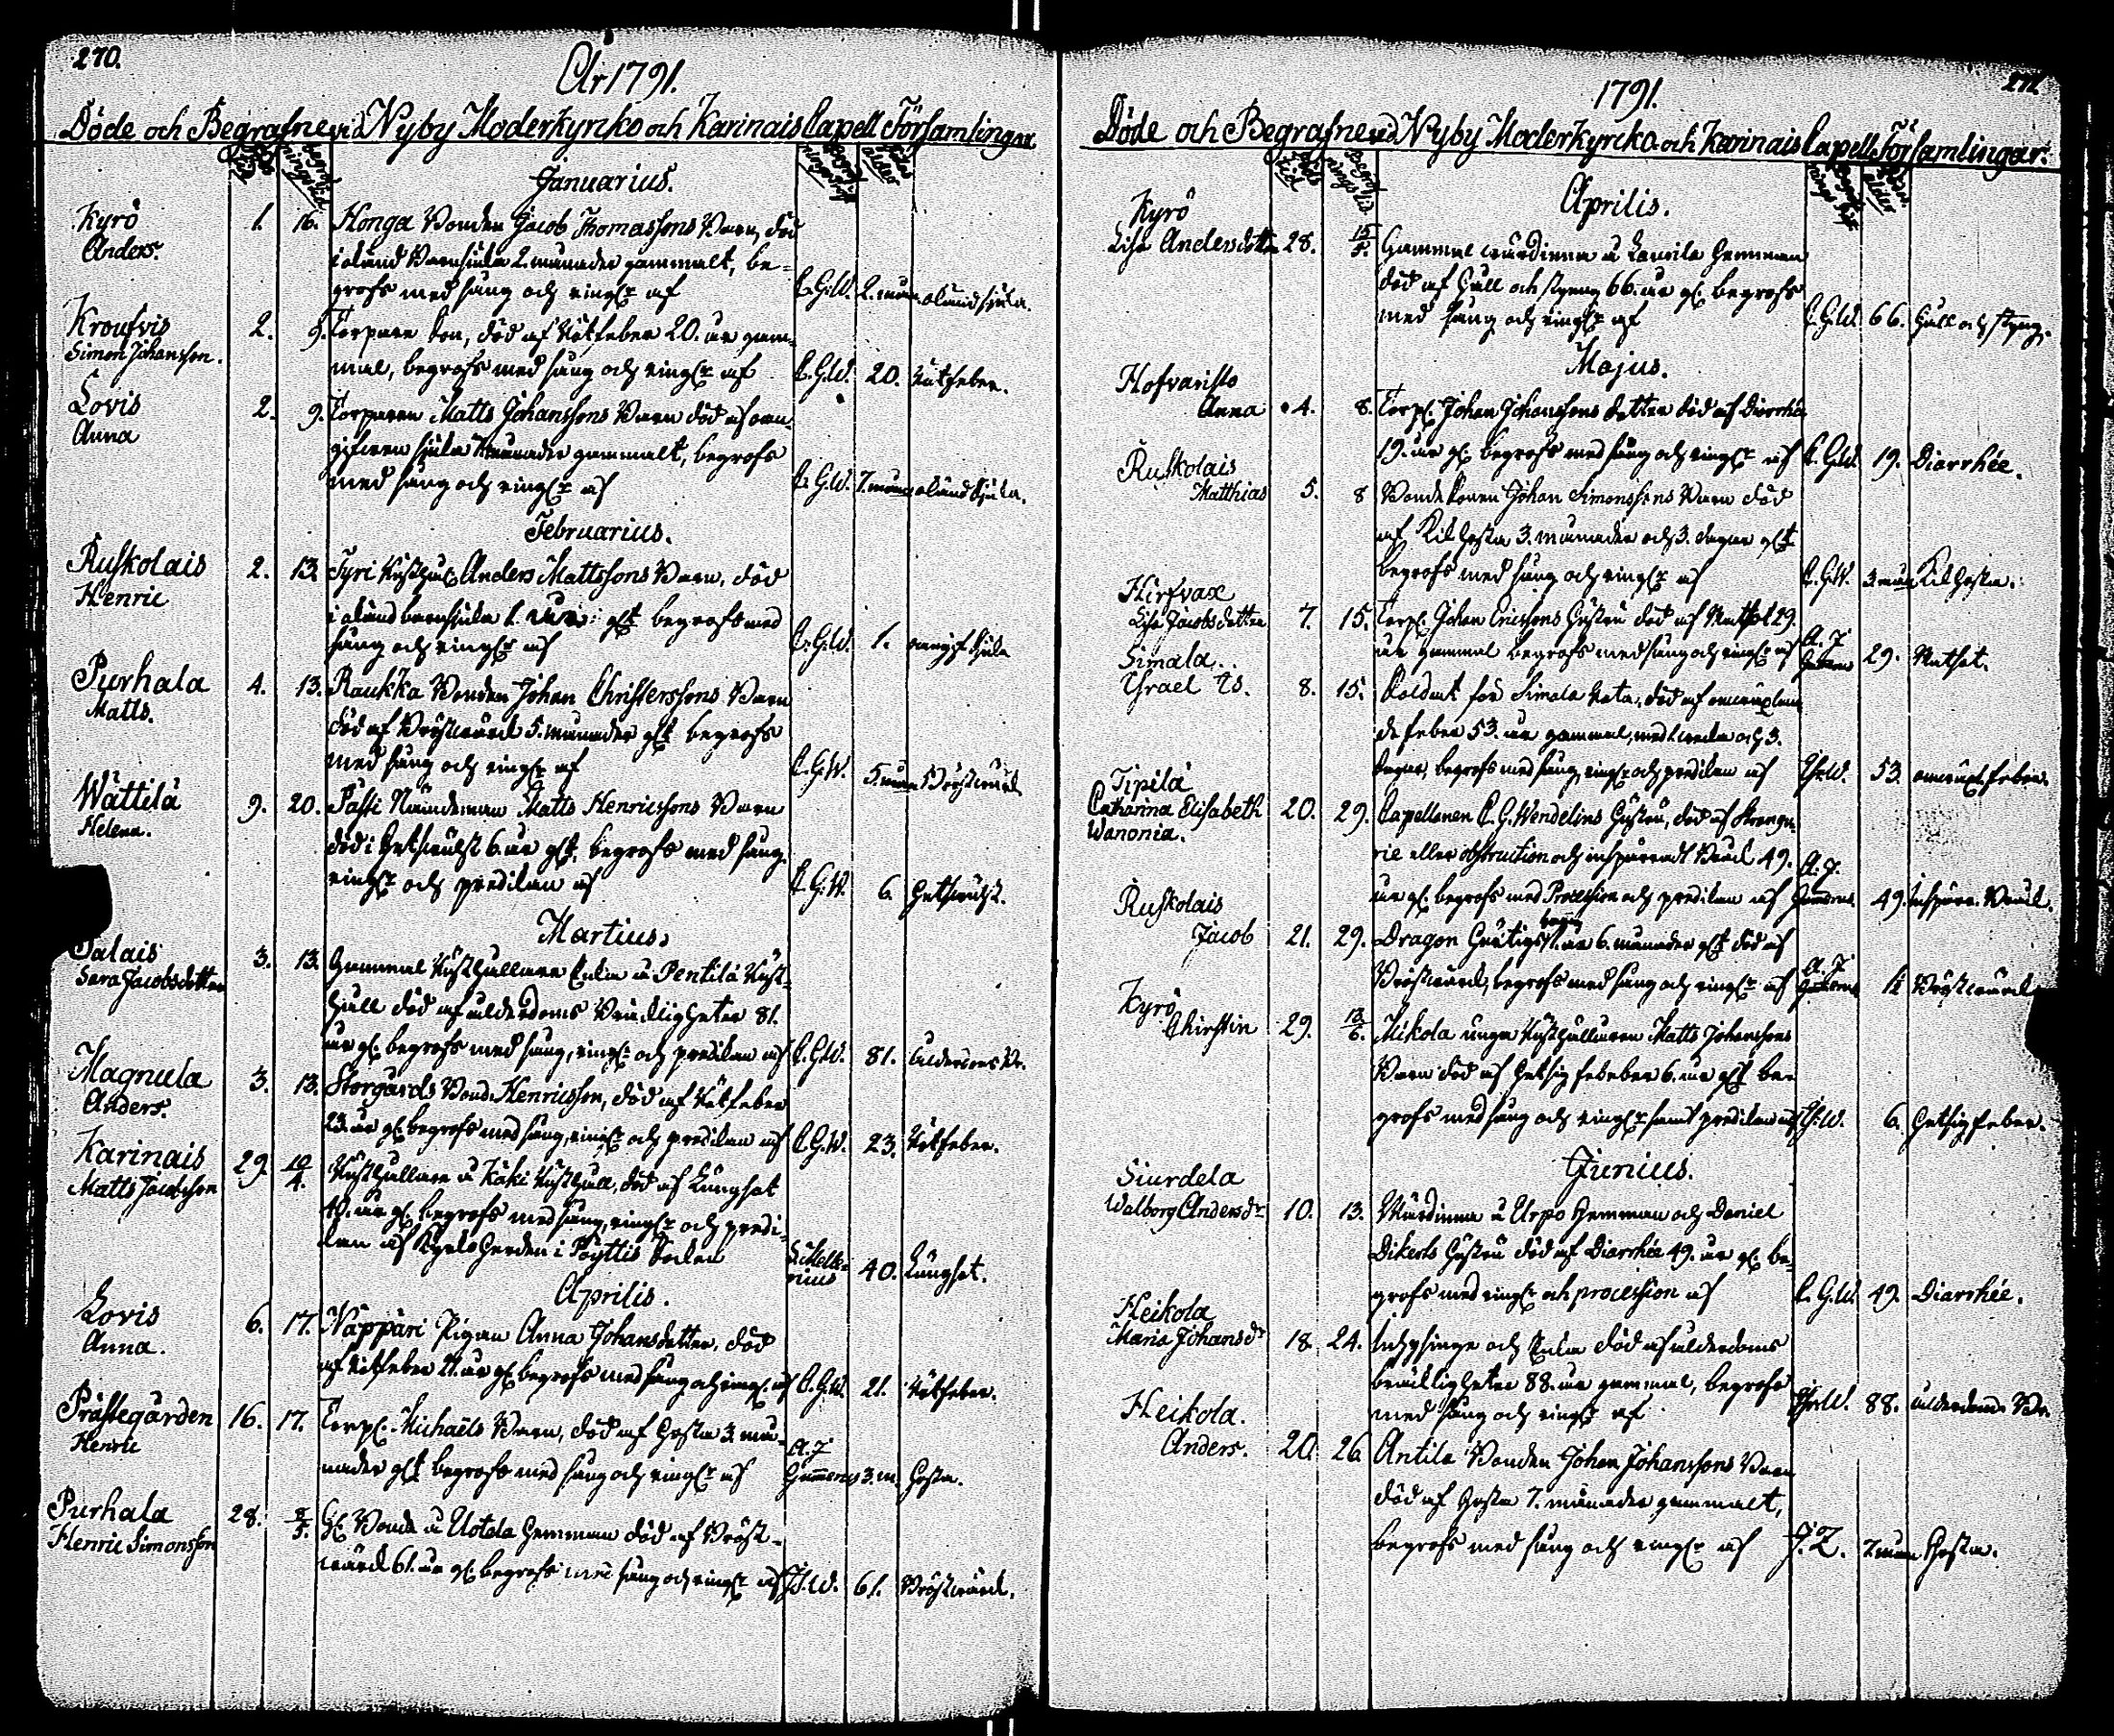 270.
År 1791.
Döde och Begrafne vid Nyby Moderkyrko och Karinais Capell Församlingar
Januarius.
Kyrö Anders. 1. 16. Honga Bonden Jacob Thomassons Barn, död
i okänd Barnsjuka 2. månader gammalt, be-
grofs med sång och ringn: af C.G.W. 2. mån okänd sjuka.
Kroufvis Simon Johansson. 2. 9. Torpare Son, död af Rötfeber 20. år gam-
mal, begrofs med sång och ringn: af C.G.W. 20. Rötfeber.
Lovis Anna 2. 9. Torparen Matts Johanssons Barn död af oan-
gifven sjuka 7 månader gammalt, begrofs
med sång och ringn: af C.G.W. 7. mån okänd Sjuka.
Februarius.
Ruskolais Henric 2. 13. Tyri Rusthål: Anders Mattssons Barn, död
i okänd barnsjuka 1. år glt begrofs med
sång och ringn: af C.G.W. 1. oangif Sjuka
Purhala Matts. 4. 13. Raukka Bonden Johan Christerssons Barn
död af Bröstvärk 5. månader glt begrofs
med sång och ringn: af C.G.W. 5. mån Bröstvärk
Wättilä Helena. 9. 20. Passi Nämndeman Matts Henricssons Barn
död i Hetsvulst 6. år glt, begrofs med sång
ringn: och predikan af C.G.W. 6. Hetsvulst.
Martius.
Salais Sara Jacobsdotter 3. 13. Gammal Rusthållare Enka å Pentilä Rust-
håll död af ålderdoms Bräckligheter 81.
år gl: begrofs med sång, ringn: och predikan af C.G.W. 81. ålderdoms Br.
Magnula Anders. 3. 13. Storgårds Bond: Henricsson, död af Rötfeber
23. år gl: begrofs med sång, ringn: och predikan af C.G.W. 23. Rötfeber.
Karinais Matts Jacobsson 29. 10/4. Rusthållare å Käki Rusthåll, död af Lungsot
40. år gl: begrofs med sång, ringn: och predi-
kan af Kyrkoherden i Pöyttis Socken S. Melle-
nius 40. Lungsot.
Aprilis.
Lovis Anna. 6. 17. Näppäri Pigan Anna Johansdotter, död
af Rötfeber 21. år gl: begrofs med sång och ringn: af C.G.W. 21. Rötfeber.
Prästegården Henric 16. 17. Torp: Michaëls Barn, död af Hosta 3. må-
nader glt begrofs med sång och ringn: af A. J. Gummerus 3. m. Hosta.
Purhala Henric Simonsson 28. 8/5. Gl: Bonde å Uotola Hemman död af Bröst-
värk 61. år gl: begrofs med sång och ringn: af J.W. 61. Bröstvärk.
271
1791.
Döde och Begrafne vid Nyby Moderkyrcko och Karinais Capell Församlingar.
Aprilis.
Kyrö Lisa Andersdotter 28. 15/5. Gammal wärdinna å Laurila Hemman
död af Håll och styng 66. år gl: begrofs
med sång och ringn: af C.G.W. 66. Håll och styng.
Majus.
Hofvaristo Anna 4. 8. Torp: Johan Johanssons dotter död af Diarrhé
19. år gl: begrofs med sång och ringn: af C.G.W. 19. Diarrhée.
Ruskolais Matthias 5. 8 Bonde Sonen Johan Simonssons Barn död
af Kikhosta 3. månader och 3. dagar glt
begrofs med sång och ringn: af C.G.W. 3. mån Kikhosta.
Hirfvax Lisa Jacobsdotter 7. 15. Torp: Johan Ericssons Hustru död af Nattsot 29.
år gammal begrofs med sång och ringn: af A. J. 29. Nattsot.
Simala Israel 8. 15. Soldat för Simala Rota, död af
de feber 53. år gammal, med 1. vecka och 3.
dagar, begrofs med sång, ringn: och predikan af 53.
Tipilä Catharina Elisabeth Wanonia. 20. 29. Capellanen C. G. Wendelins Hustru, död af
rie eller obstruction och inspärradt Bråck 49. A. J.
år gl: begrofs med Procession och predikan af Gummerus. 49. inspärr. Bråck.
Ruskolais Jacob 21. 29. Dragon 1. år 6. månader glt död af
Bröstvärk, begrofs med sång och ringn: af A. J. 1½ Bröstvärk
Kyrö Christin 29. 13/6. Mikola unga Rusthållaren Matts Johanssons
Barn död af Hetsig febeber 6. år glt be-
grofs med sång och ringn: samt predikan af 6. Hetsig feber.
Junius.
Siurdela Walborg Andersdr 10. 13. Wärdinna å Urpo Hemman och Daniel
Dikerts Hustru död af Diarrhée 49. år gl: be-
grofs med ringn: och procession af C.G.W. 49. Diarrhée.
Heikola Maria Johansdr 18. 24. Inhysinge och Enka död af ålderdoms
bräckligheter 88. år gammal, begrofs
med sång och ringn: af 88. ålderdoms Br.
Heikola. Anders. 20. 26. Antila Bonden Johan Johanssons Barn
död af Hosta 7. månader gammalt,
begrofs med sång och ringn: af J.Z. 7 mån Hosta.